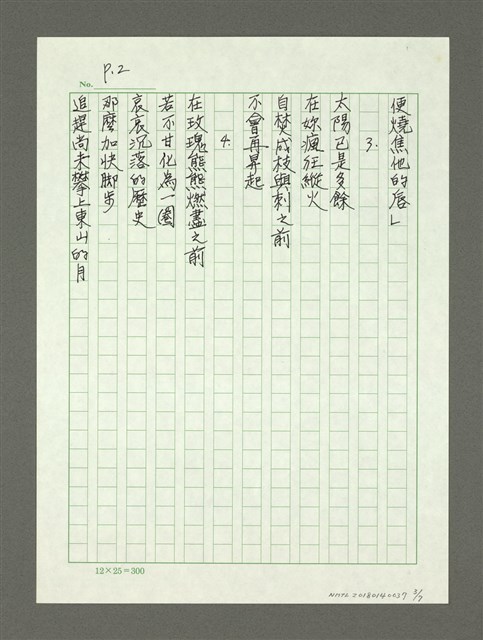 P.2
No.
便燒焦他的唇」
3.
太陽已是多餘
在妳瘋狂縱火
自焚成枝與刺之前
不會再昇起
4.
在玫瑰熊熊燃盡之前
若不甘化為一圈
哀哀沉落的歷史
那麼加快腳步
追趕尚未攀上東山的月
12×25=300
NMTL 20180140037 3/7